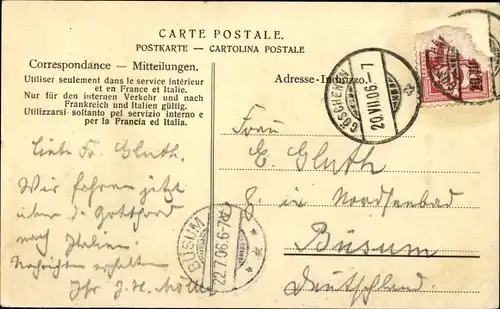 CARTE POSTALE.
POSTKARTE — CARTOLINA POSTALE
Correspondance — Mitteilungen.
Utiliser seulement dans le service intérieur
et en France et Italie.
Nur für den internen Verkehr und nach
Frankreich und Italien gültig.
Utilizzarsi soltanto pel servizio interno e
per la Francia ed Italia.
Adresse-Indirizzo.
GÖSCHENEN
20.VII.06.-7
Liebe Fr. Gluth.
Wir fahren jetzt
über d. Gotthard
nach Italien.
Nachrichten erhalten
Ihr J. H.
Frau
E. Gluth
z. in Nordseebad
Büsum
Deutschland.
BÜSUM
22.7.06.6-7N